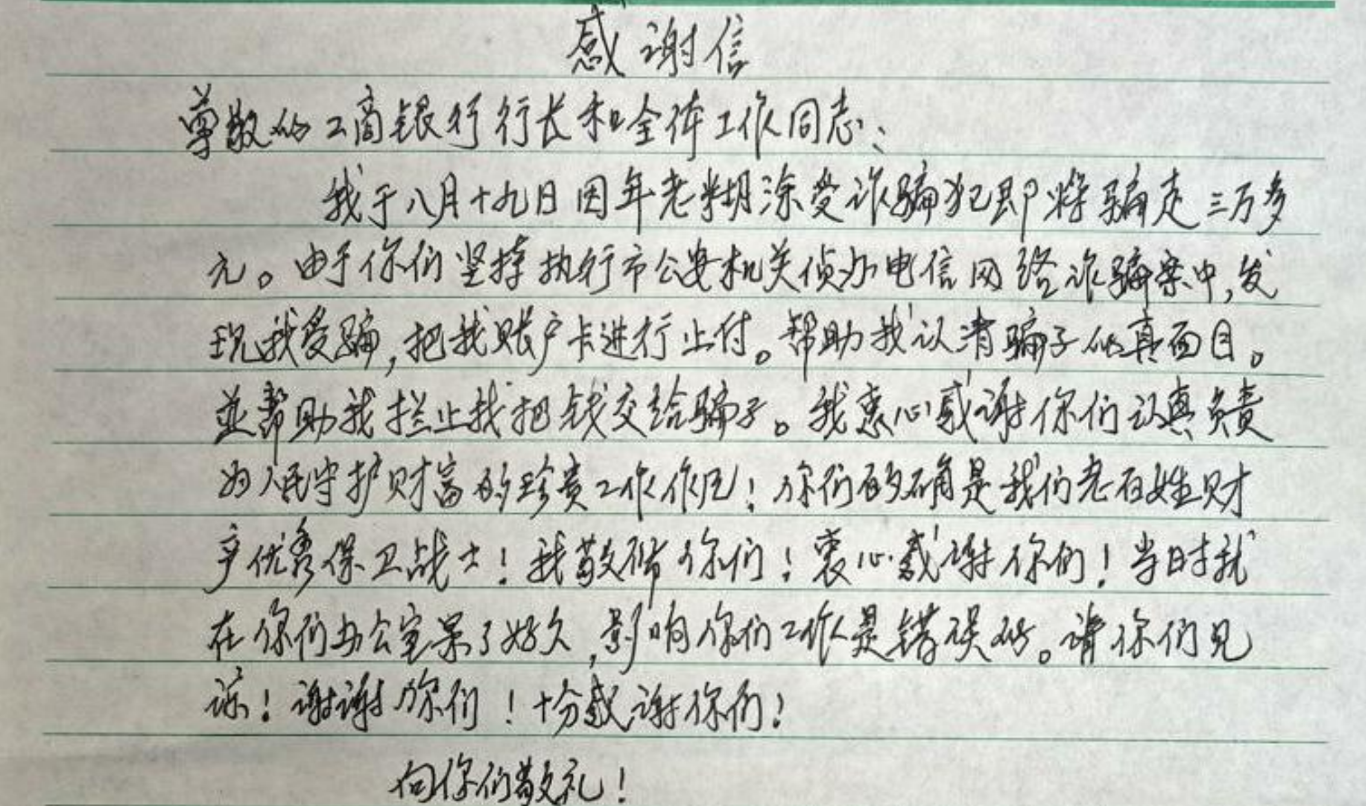 感谢信
尊敬的工商银行行长和全体工作同志:
我于八月十九日因年老糊涂受诈骗犯即将骗走三万多
元。由于你们坚持执行市公安机关侦办电信网络诈骗案中,发
现我受骗,把我账户卡进行止付。帮助我认清骗子的真面目。
並帮助我拦止我把钱交给骗子。我衷心感谢你们认真负责
为人民守护财富的珍贵工作作风!你们的确是我们老百姓财
产优秀保卫战士!我敬佩你们!衷心感谢你们!当时我
在你们办公室呆了好久,影响你们工作是错误的。请你们见
谅!谢谢你们!十分感谢你们!
向你们敬礼!